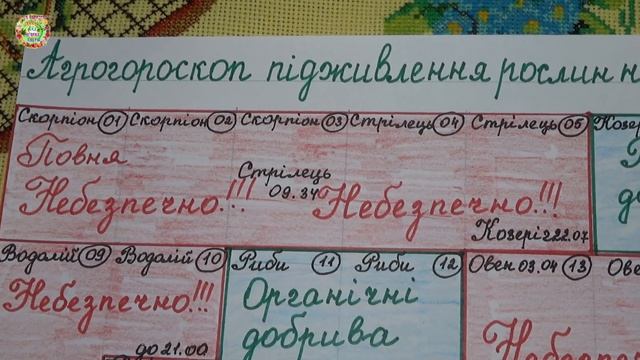 Агрогороскоп підживлення рослин н
Скорпіон 01 Скорпіон 02 Скорпіон 03 Стрілець 04 Стрілець 05 Козер
Повня
Небезпечно!!!
Стрілець
09.34
Небезпечно!!!
Козеріг 22.07
Водалій 09 Водалій 10 Риби 11 Риби 12 Овен 03.04 13 Ове
Небезпечно!!!
до 21.00
Органічні
добрива